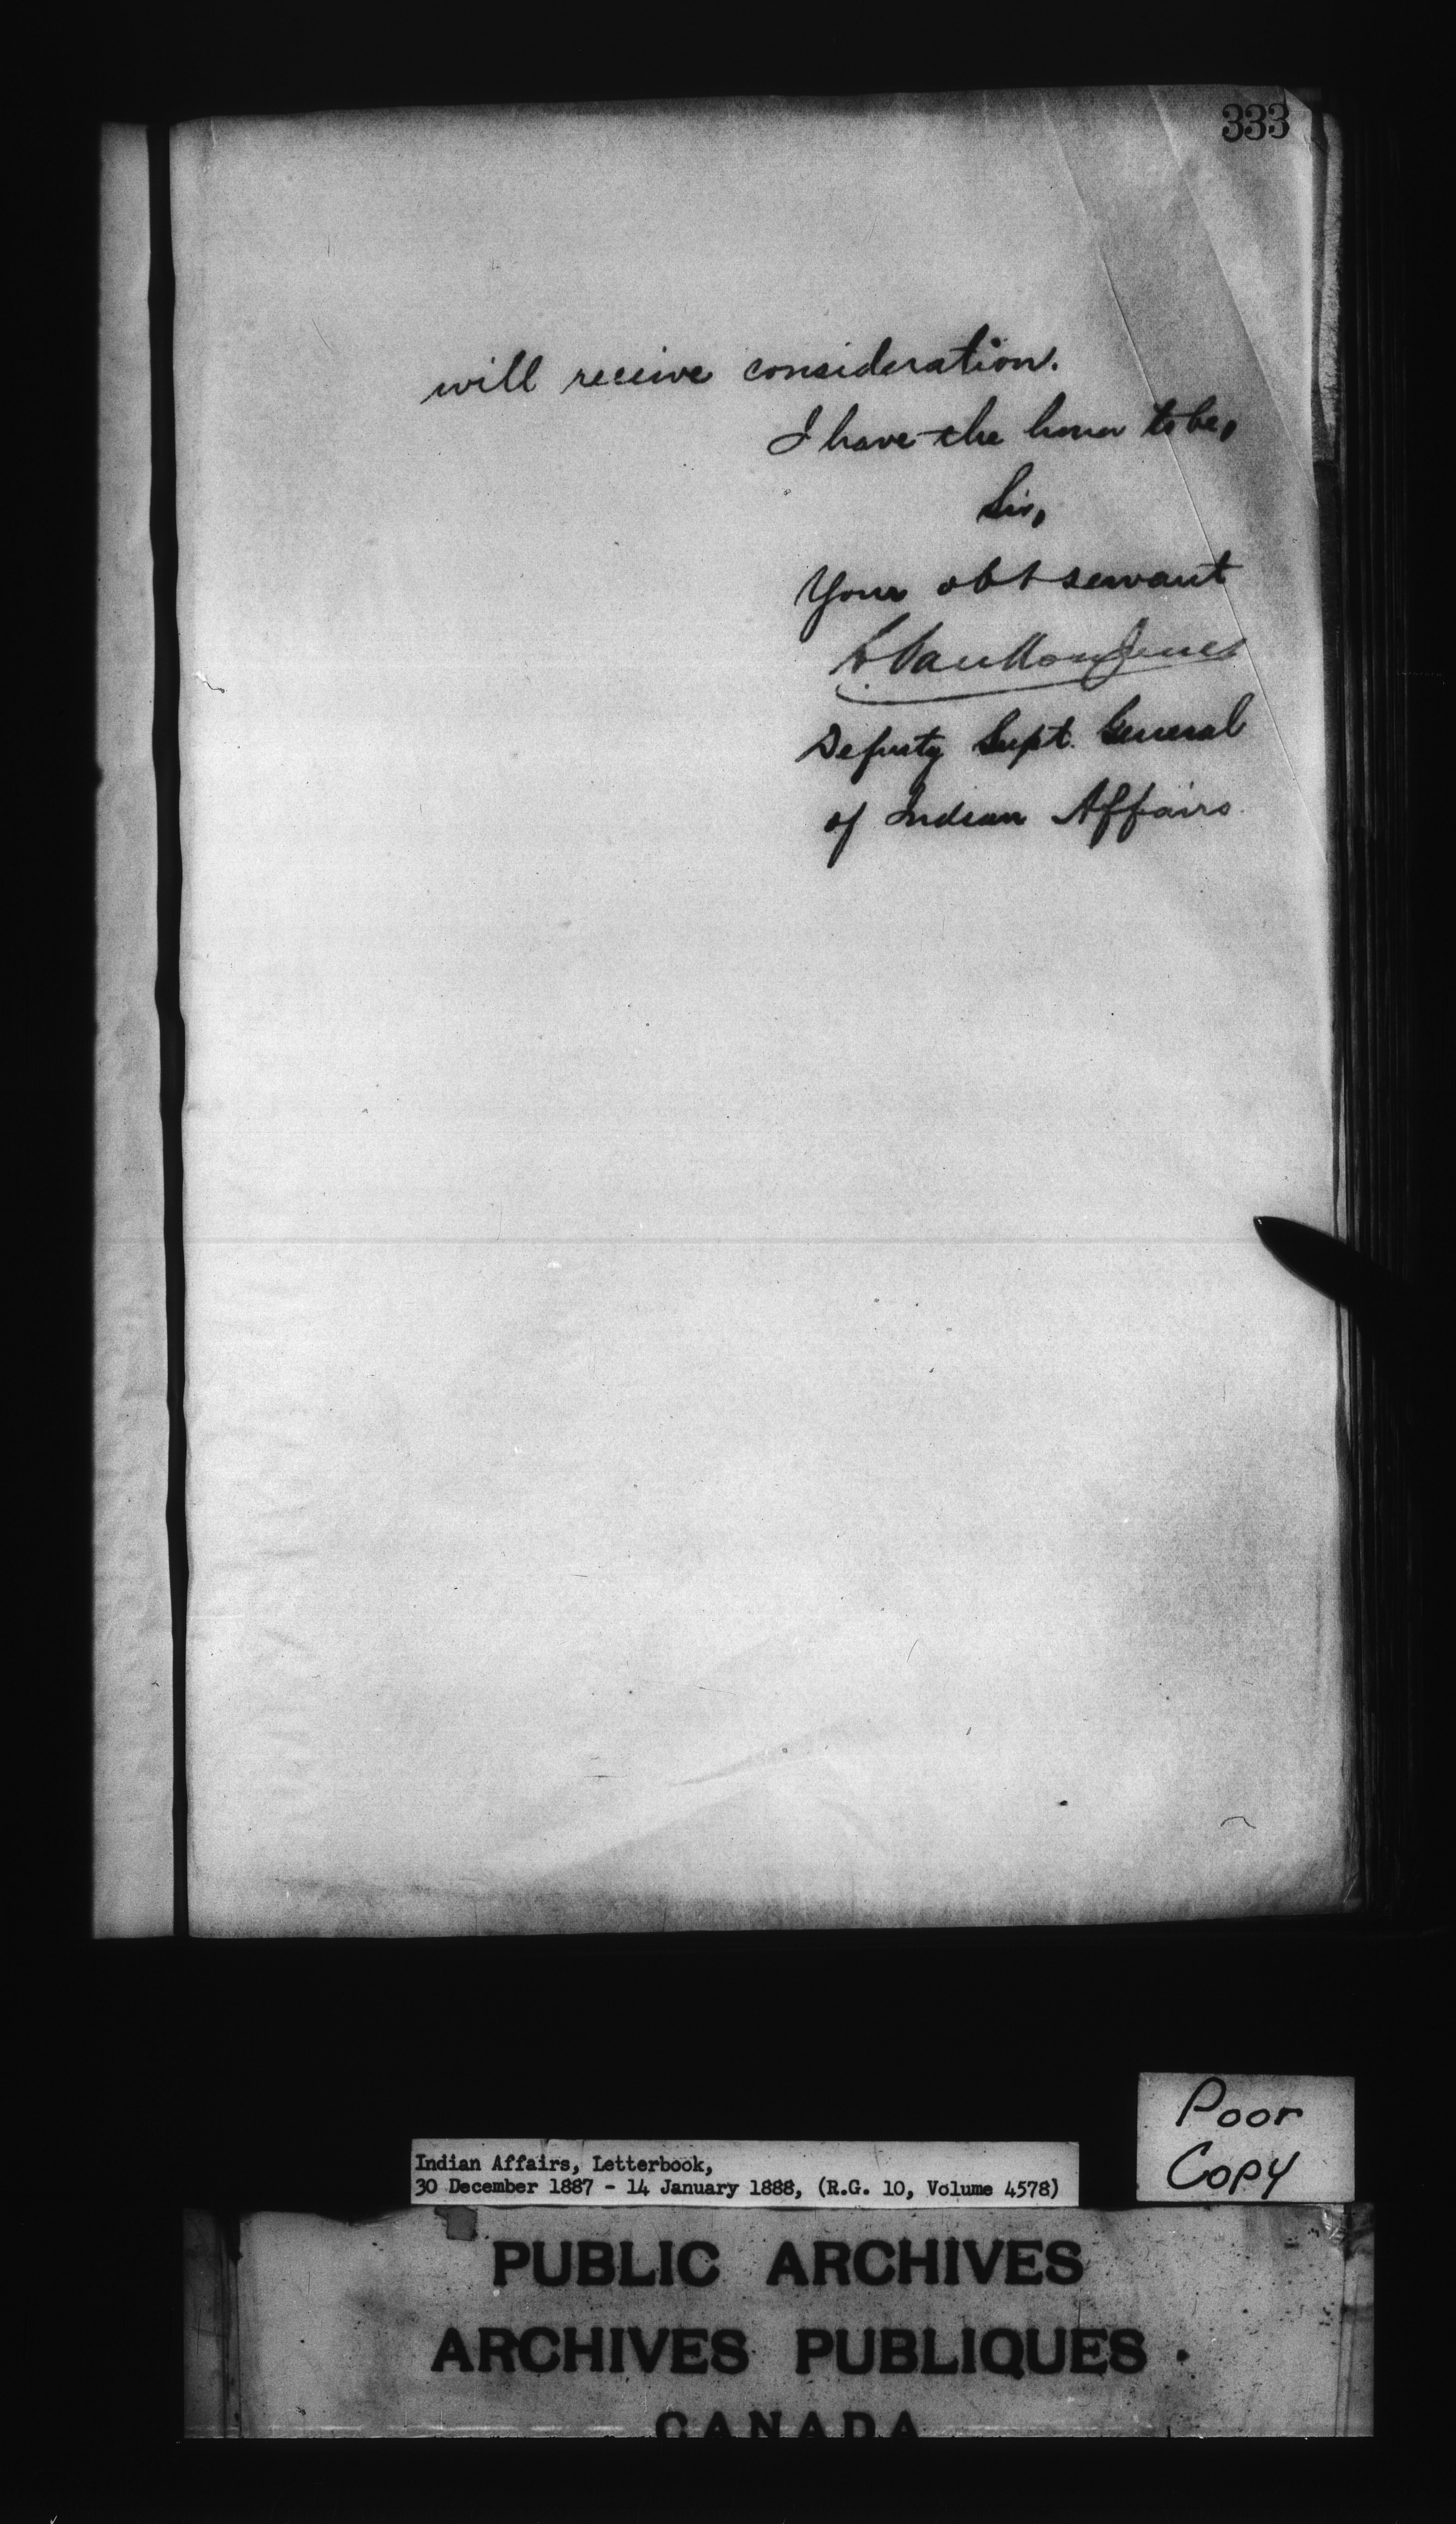 333
will receive consideration.
I have the honor to be,
Sir,
Your obt servant
L. Vankoughnet
Deputy Supt. General
of Indian Affairs.
Poor
Copy
Indian Affairs, Letterbook,
30 December 1887 - 14 January 1888, (R.G. 10, Volume 4578)
PUBLIC ARCHIVES
ARCHIVES PUBLIQUES
CANADA